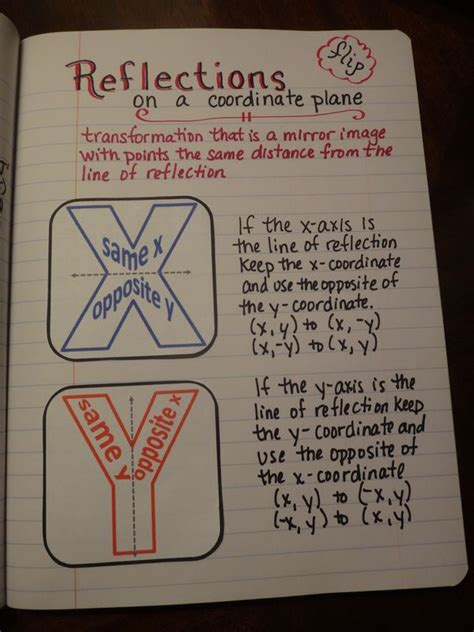 flip
Reflections
on a coordinate plane
transformation that is a mirror image
with points the same distance from the
line of reflection
same x
opposite y
If the x-axis is
the line of reflection
keep the x-coordinate
and use the opposite of
the y-coordinate.
(x, y) to (x, -y)
(x, -y) to (x, y)
same y
opposite x
If the y-axis is the
line of reflection keep
the y-coordinate and
use the opposite of
the x-coordinate
(x, y) to (-x, y)
(-x, y) to (x, y)